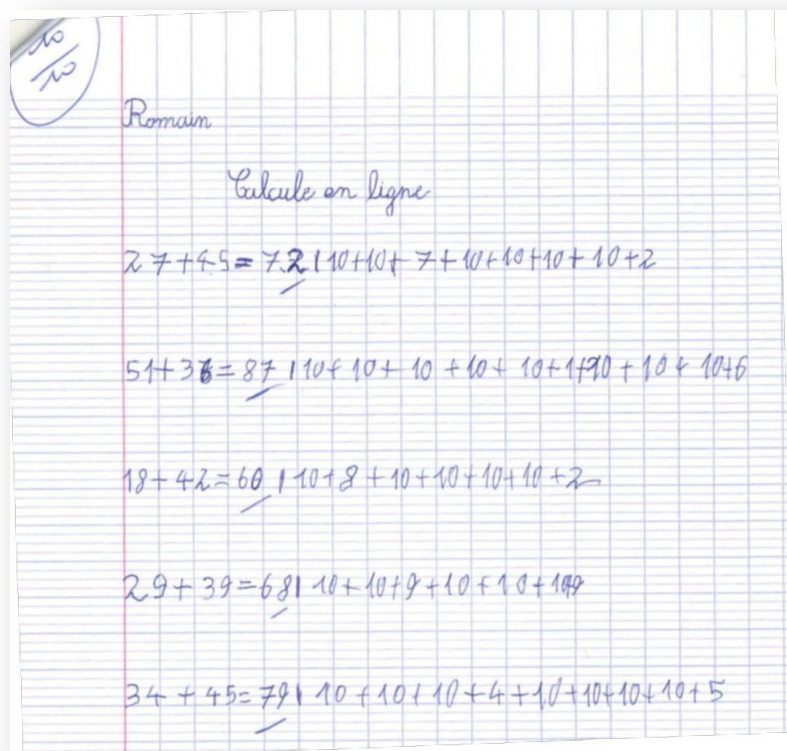 10/10
Romain
Calcule en ligne
27+45=72|10+10+7+10+10+10+10+2
51+36=87|10+10+10+10+10+1+10+10+10+6
18+42=60|10+8+10+10+10+10+2
29+39=68|10+10+9+10+10+10+9
34+45=79|10+10+10+4+10+10+10+10+5